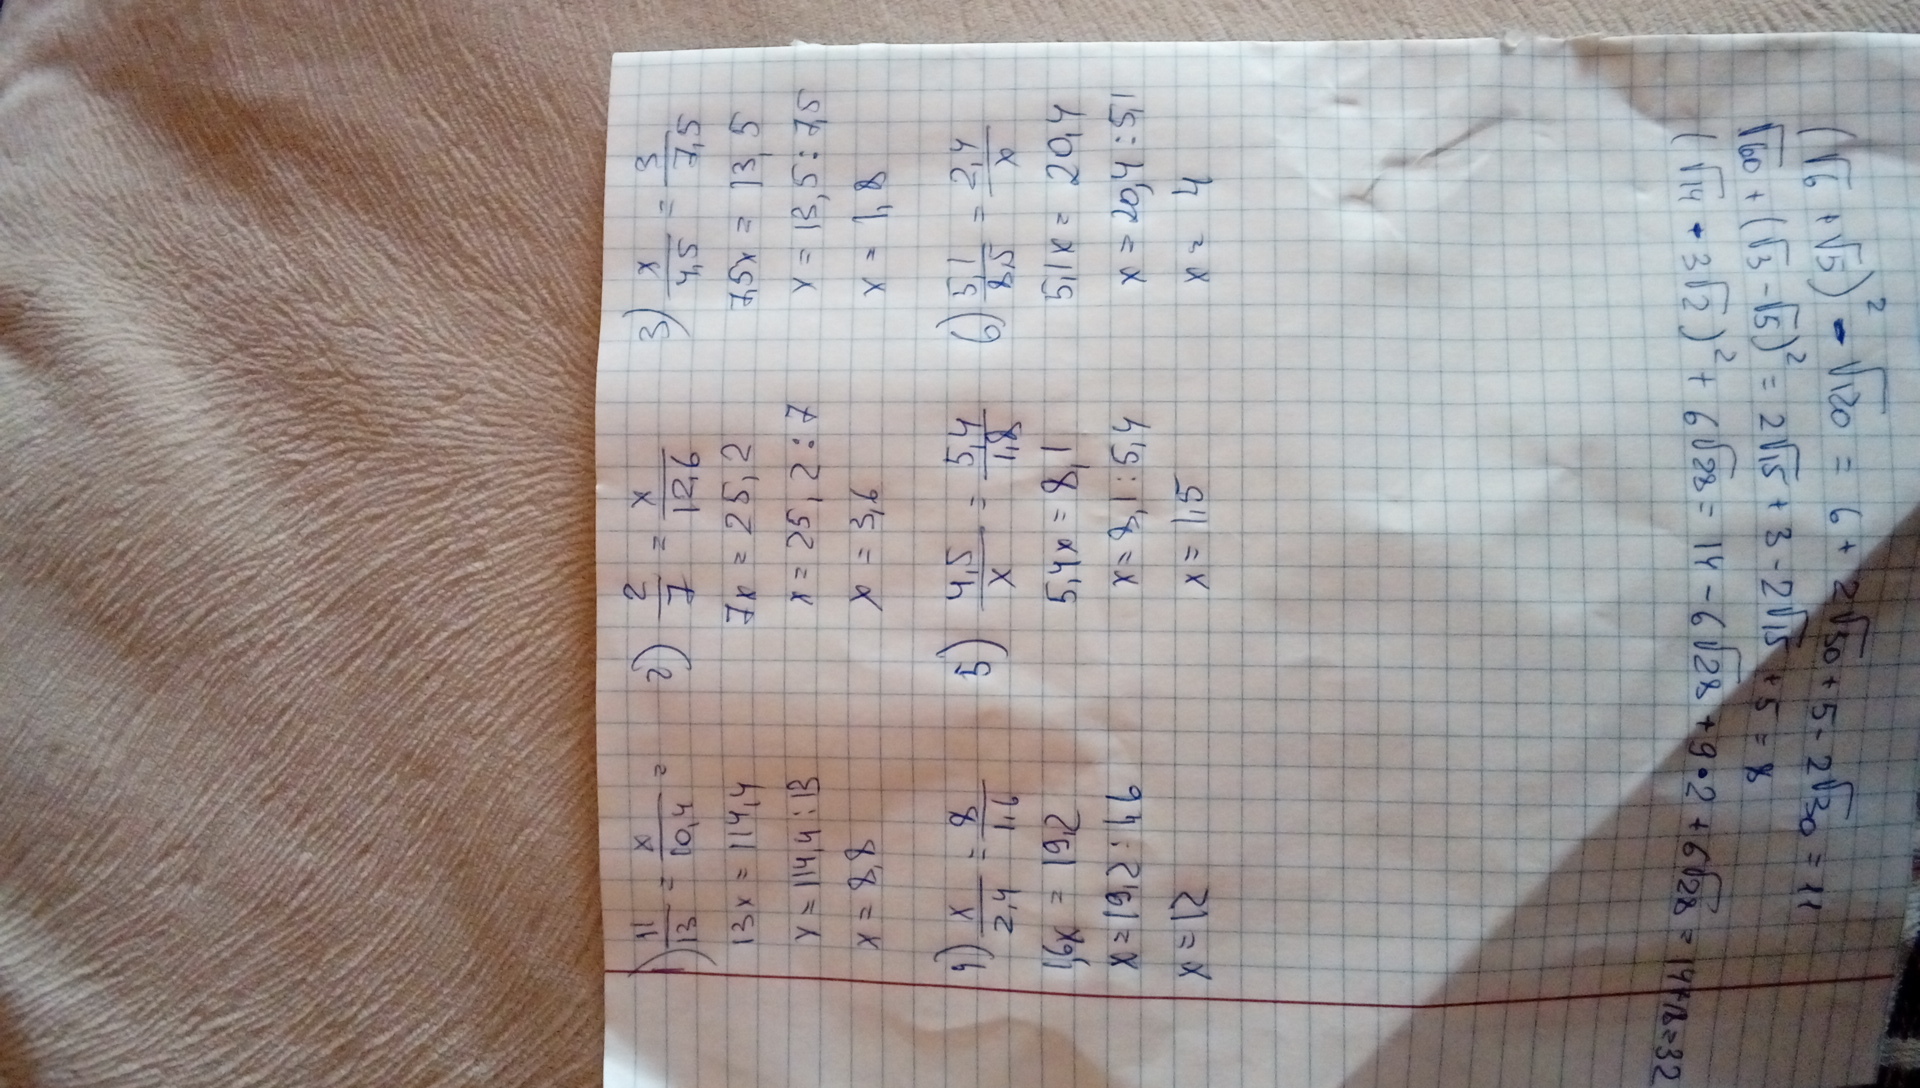 1) 11/13 = x/10,4 =
13x = 114,4
x = 114,4 : 13
x = 8,8
2) 2/7 = x/12,6
7x = 25,2
x = 25,2 : 7
x = 3,6
3) x/4,5 = 3/7,5
7,5x = 13,5
x = 13,5 : 7,5
x = 1,8
4) x/2,4 = 8/1,6
1,6x = 19,2
x = 19,2 : 1,6
x = 12
5) 4,5/x = 5,4/1,8
5,4x = 8,1
x = 8,1 : 5,4
x = 1,5
6) 5,1/8,5 = 2,4/x
5,1x = 20,4
x = 20,4 : 5,1
x = 4
(√6 + √5)² - √120 = 6 + 2√30 + 5 - 2√30 = 11
√60 + (√3 - √5)² = 2√15 + 3 - 2√15 + 5 = 8
(√14 - 3√2)² + 6√28 = 14 - 6√28 + 9 • 2 + 6√28 = 14+18=32